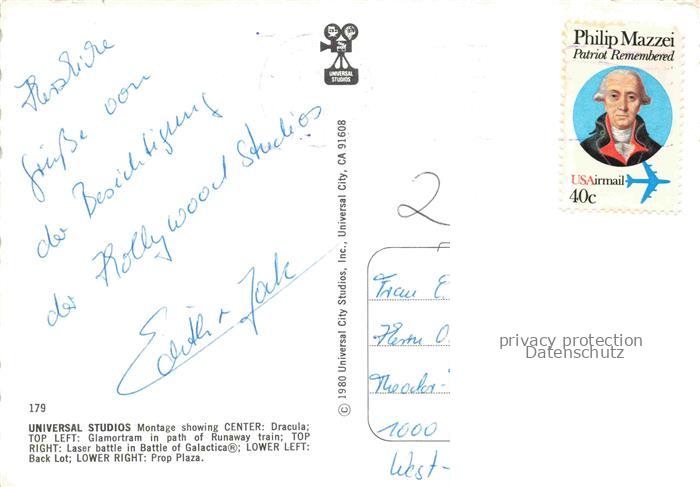 Herzliche
Grüße von
der Besichtigung
der Hollywood Studios
Edith +
UNIVERSAL
STUDIOS
© 1980 Universal City Studios, Inc., Universal City, CA 91608
Philip Mazzei
Patriot Remembered
USAirmail
40c
2
Frau E.
Herrn O.
Theodor-
1000
West-
privacy protection
Datenschutz
179
UNIVERSAL STUDIOS Montage showing CENTER: Dracula;
TOP LEFT: Glamortram in path of Runaway train; TOP
RIGHT: Laser battle in Battle of Galactica®; LOWER LEFT:
Back Lot; LOWER RIGHT: Prop Plaza.